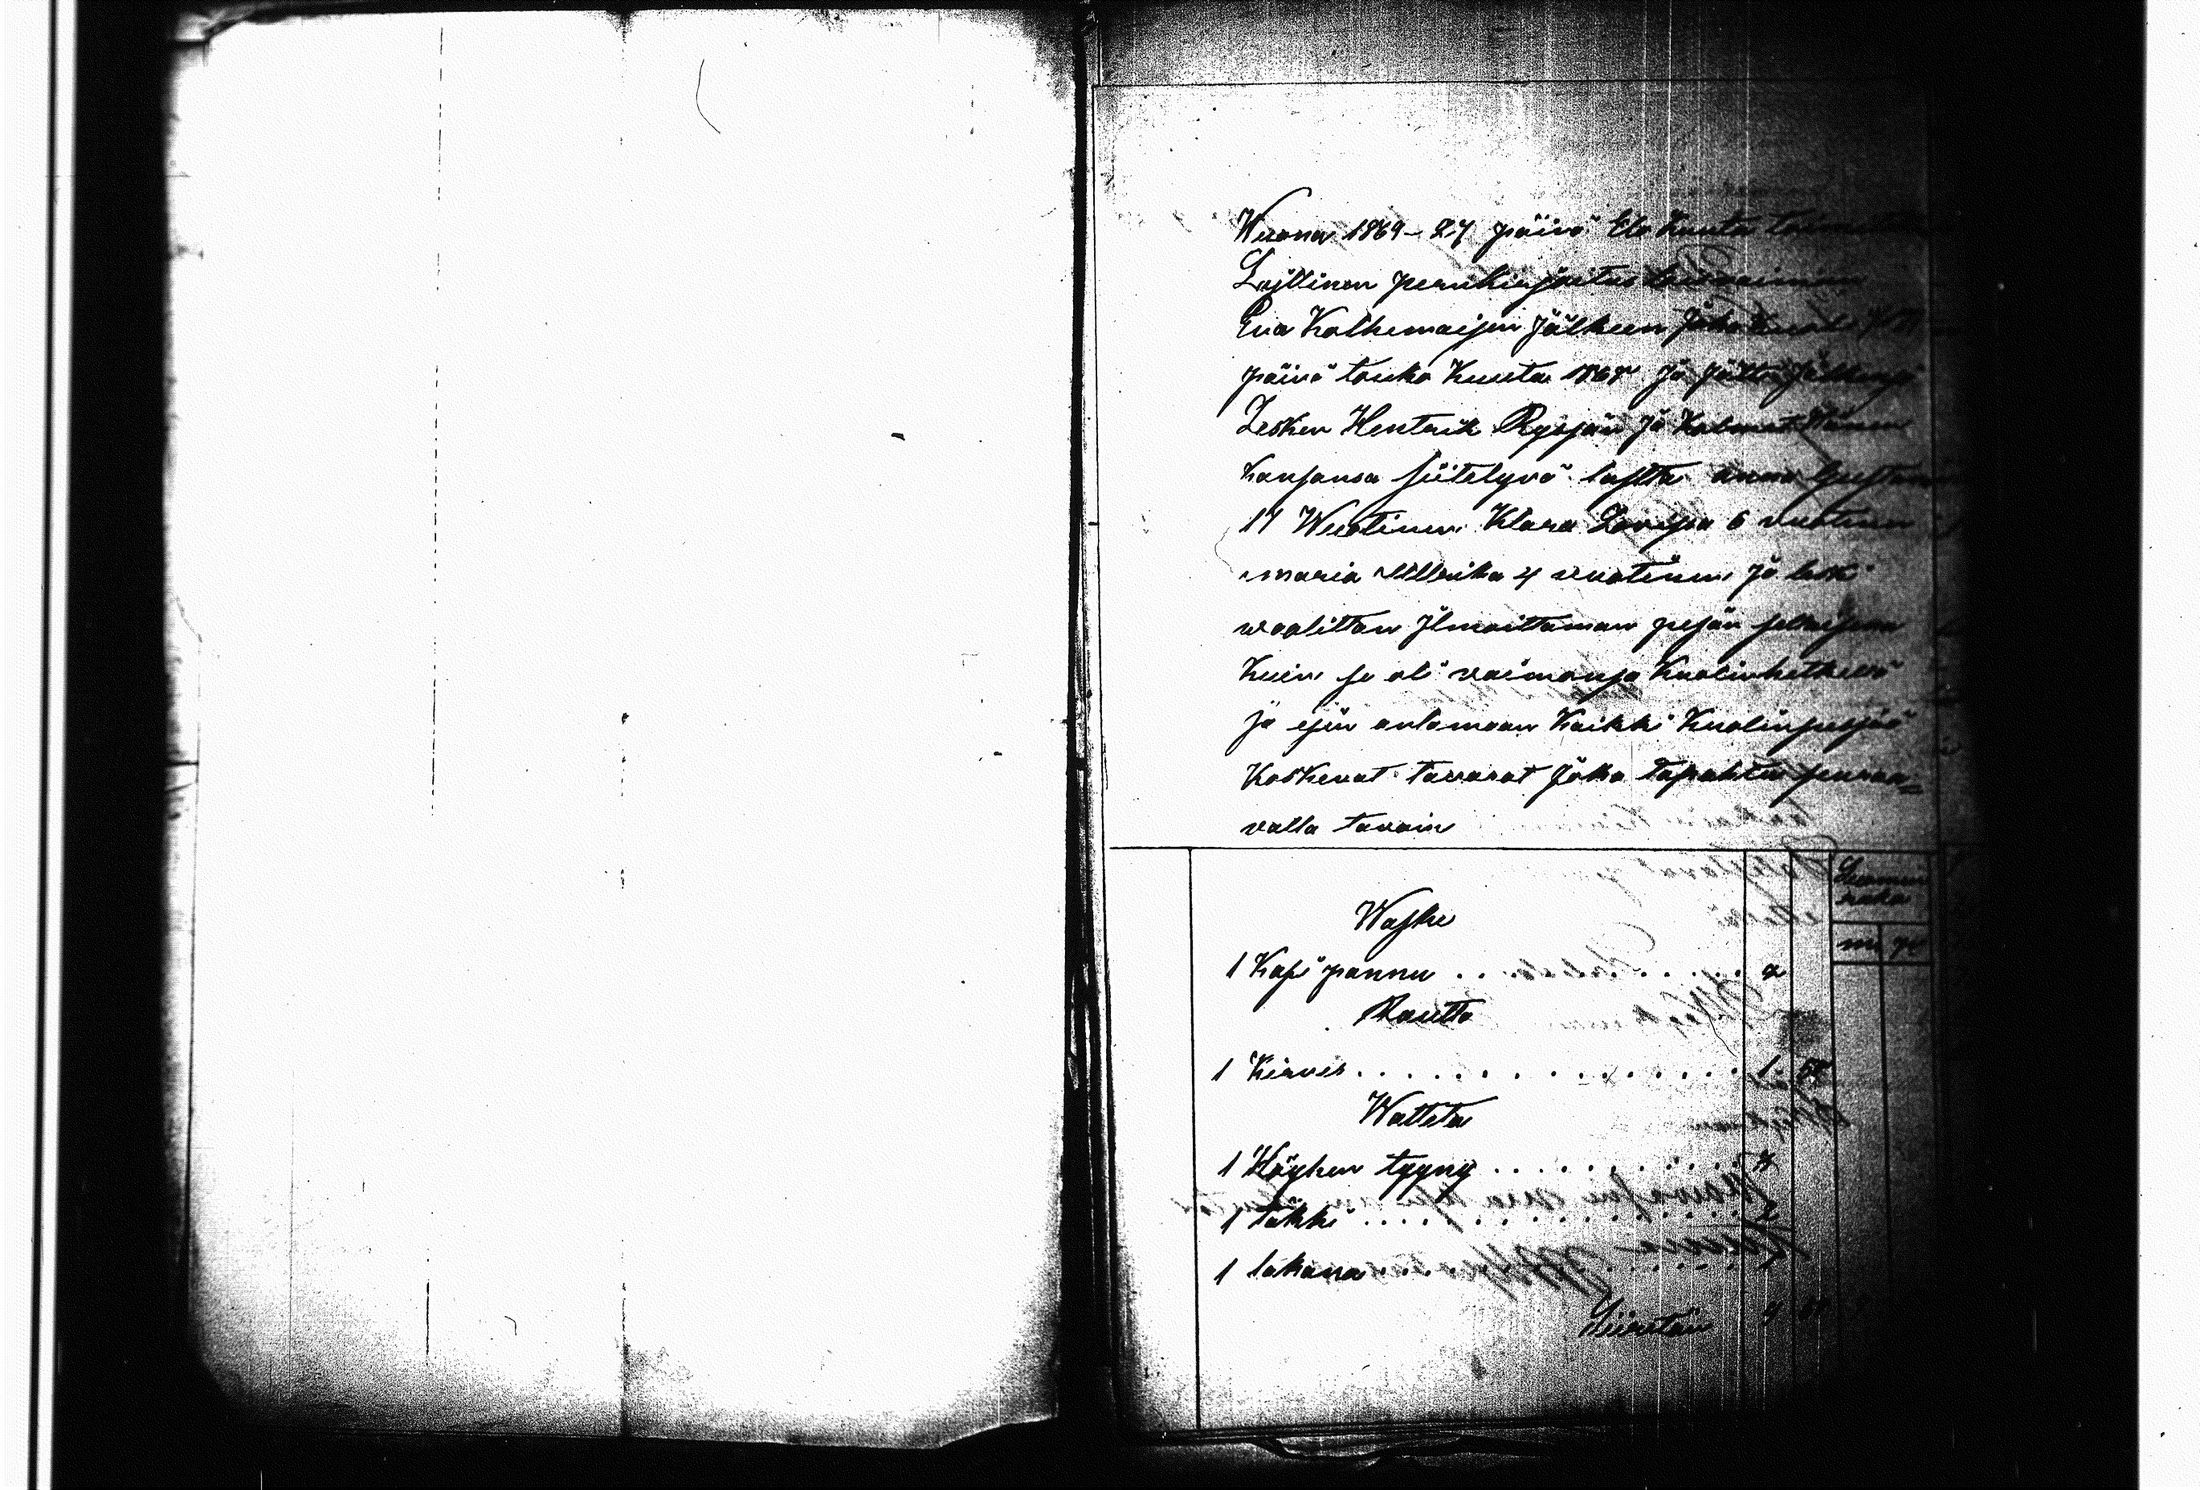 Wuona 1869 - 27 päivä Elo Kuuta
Lajllinen perukirjoitus
Eva Kolhemaijen Jälkeen Joka Kuoli
päivä touko Kuuta 1868 Jä Jätti Jälkensä
Lesken Hentrik Ryssjän Jä Kolmet Hänen
Kansansa siitetyvä lasta anna Gustava
17 Wuotinen Klara Lovisa 6 vuotinen
maria Ullrika 4 vuotinen Jä leski
vaalittan Jlmoittaman pesän
Kuin se oli vaimonsa Kuolinhetkenä
ja esin antamaan Kaikki Kuolinpesjää
Koskevat tavarat Joka tapahtu seuraa=
valla tavain
Suomen
raha
m p
Waske
1 Kafi pannu . . . . . . . . . . 2
Rautta
1 Kirves . . . . . . . . . . . . 1 50
Watteta
1 Höyhen tyyny . . . . . . . . .
1 täkki . . . . . . . . . . . . 2
1 lakana . . . . . . . . . . . .
Siiretän